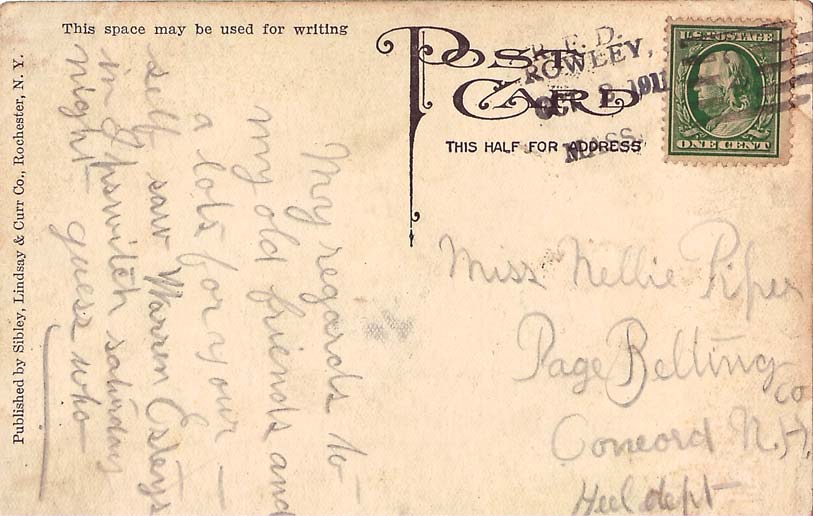 This space may be used for writing
POST CARD
THIS HALF FOR ADDRESS
R. F. D.
ROWLEY,
OCT 3 1911
MASS.
U.S. POSTAGE
ONE CENT
My regards to
my old friends and
a lots for your
self saw Warren Esteys
in Ipswitch saturday
night guess who
Miss Nellie Piper
Page Belting Co
Concord N.H.
Heel dept
Published by Sibley, Lindsay & Curr Co., Rochester, N. Y.